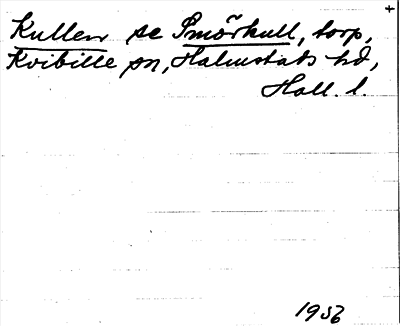 +
Kullen se Smörkull, torp,
Kvibille sn, Halmstads hd,
Hall. l.
1956